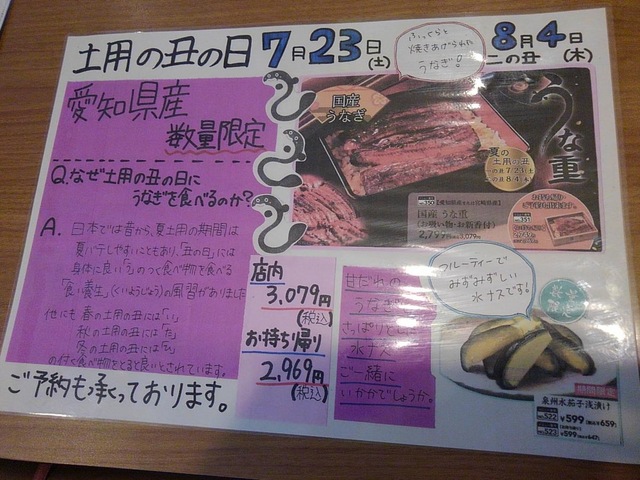 土用の丑の日 7月23日(土) 8月4日(木)
二の丑
愛知県産
数量限定
Q.なぜ土用の丑の日に
うなぎを食べるのか?
A. 日本では昔から、夏土用の期間は
夏バテしやすいこともあり、「丑の日」には
身体に良い「う」のつく食べ物を食べる
「食い養生」(くいようじょう)の風習がありました
他にも 春の土用の丑には「い」
秋の土用の丑には「た」
冬の土用の丑には「ひ」
の付く食べ物をとると良いとされています。
ご予約も承っております。
ふっくらと
焼きあげられた
うなぎ!
国産
うなぎ
うな重
夏の
土用の丑
一の丑 7/23(土)
二の丑 8/4(木)
【愛知県産または宮崎県産】
国産 うな重
(お吸い物・お新香付)
2,799円 3,079円
店内
3,079円
(税込)
お持ち帰り
2,969円
(税込)
甘だれの
うなぎと
さっぱりとした
水ナス
ご一緒に
いかがでしょうか。
フルーティーで
みずみずしい
水ナスです!
期間限定
泉州水茄子浅漬け
No.522 ¥599 (税込¥659)
No.523 ¥599 (税込¥647)